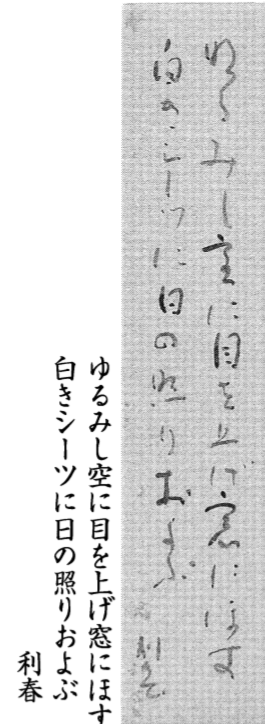 ゆるみし空に目を上げ窓にほす
白きシーツに日の照りおよぶ 利春
ゆるみし空に目を上げ窓にほす
白きシーツに日の照りおよぶ
利春